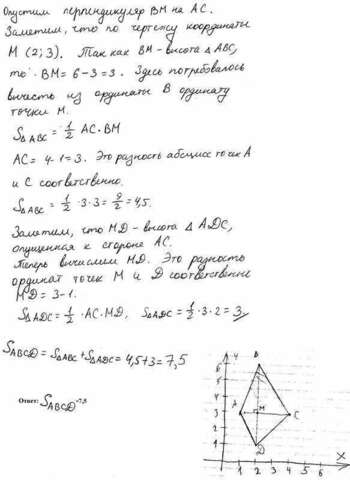 Опустим перпендикуляр BM на AC.
Заметим, что по чертежу координаты
M (2; 3). Так как BM - высота △ ABC,
то BM = 6 - 3 = 3. Здесь потребовалось
вычесть из ординаты B ординату
точки M.
S△ABC = 1/2 AC · BM
AC = 4 - 1 = 3. Это разность абсцисс точек A
и C соответственно.
S△ABC = 1/2 · 3 · 3 = 9/2 = 4,5.
Заметим, что MD - высота △ ADC,
опущенная к стороне AC.
Теперь вычислим MD. Это разность
ординат точек M и D соответственно
MD = 3 - 1.
S△ADC = 1/2 · AC · MD, S△ADC = 1/2 · 3 · 2 = 3
SABCD = S△ABC + S△ADC = 4,5 + 3 = 7,5
Ответ: SABCD = 7,5
y
B
6
5
4
A
3
M
C
2
1
D
1 2 3 4 5 6
X